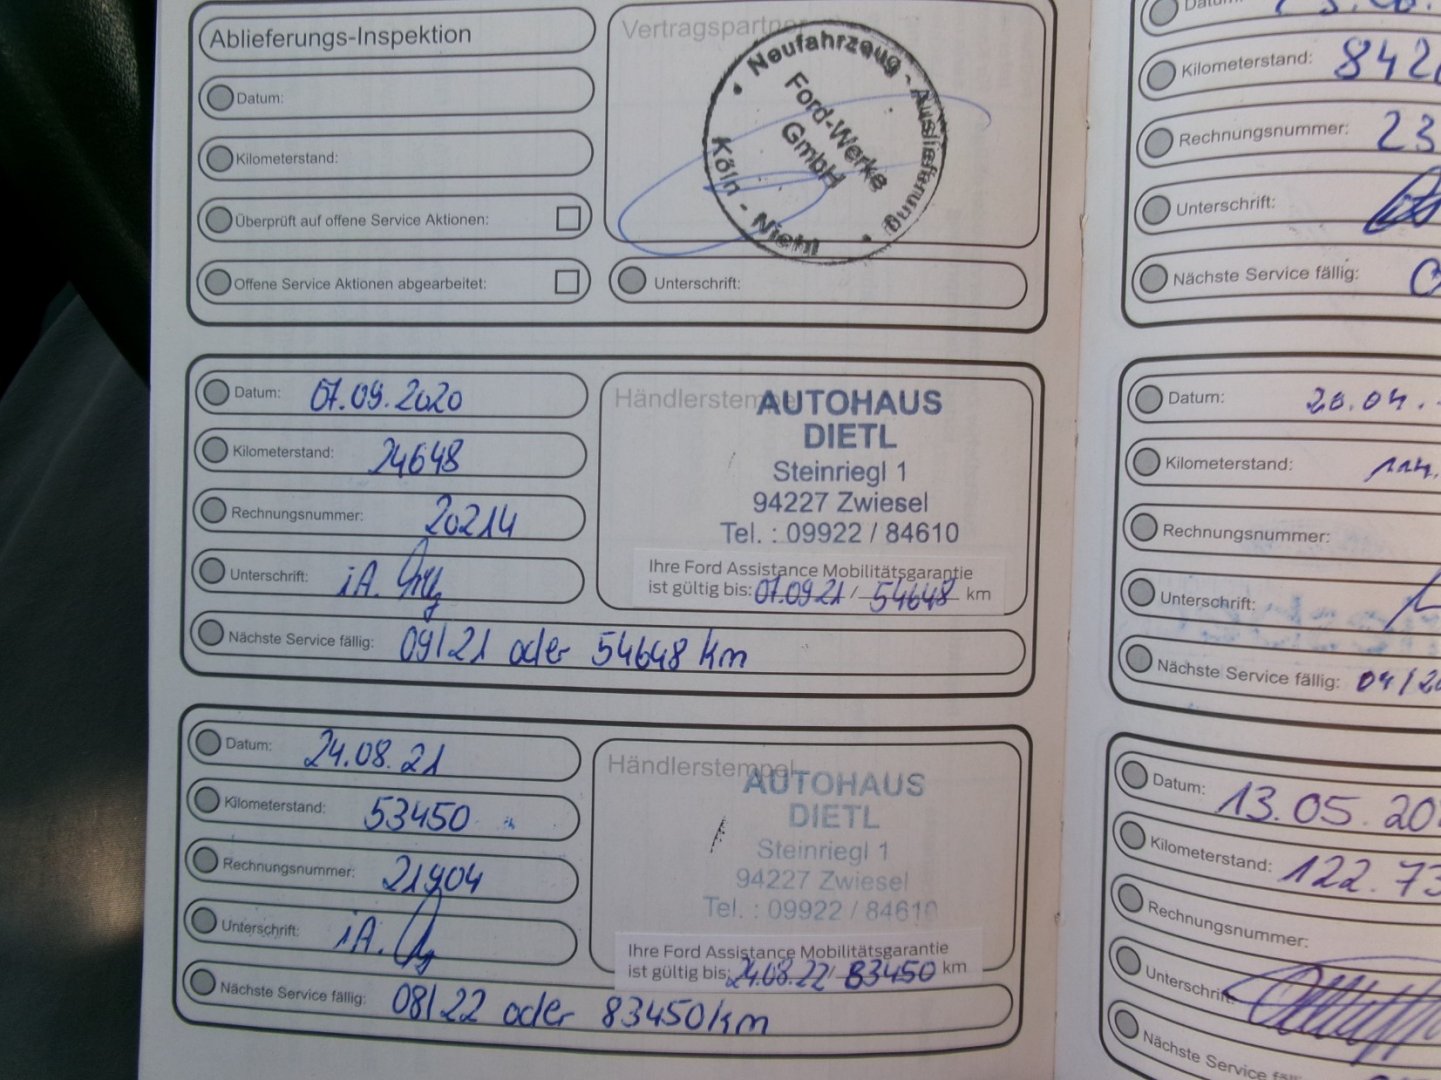 Ablieferungs-Inspektion
Datum:
Kilometerstand:
Überprüft auf offene Service Aktionen:
Offene Service Aktionen abgearbeitet:
Vertragspartner
Neufahrzeug - Auslieferung
Ford-Werke
GmbH
Köln - Niehl
Unterschrift:
Datum: 07.09.2020
Kilometerstand: 24648
Rechnungsnummer: 20214
Unterschrift: iA.
Nächste Service fällig: 09/21 oder 54648 km
Händlerstempel
AUTOHAUS
DIETL
Steinriegl 1
94227 Zwiesel
Tel. : 09922 / 84610
Ihre Ford Assistance Mobilitätsgarantie
ist gültig bis: 07.09.21 / 54648 km
Datum: 24.08.21
Kilometerstand: 53450
Rechnungsnummer: 21904
Unterschrift: iA.
Nächste Service fällig: 08/22 oder 83450 km
Händlerstempel
AUTOHAUS
DIETL
Steinriegl 1
94227 Zwiesel
Tel. : 09922 / 84610
Ihre Ford Assistance Mobilitätsgarantie
ist gültig bis: 24.08.22 / 83450 km
Datum:
Kilometerstand: 842
Rechnungsnummer: 23
Unterschrift:
Nächste Service fällig:
Datum: 20.04.
Kilometerstand: 114.
Rechnungsnummer:
Unterschrift:
Nächste Service fällig: 04/2
Datum: 13.05.20
Kilometerstand: 122.73
Rechnungsnummer:
Unterschrift:
Nächste Service